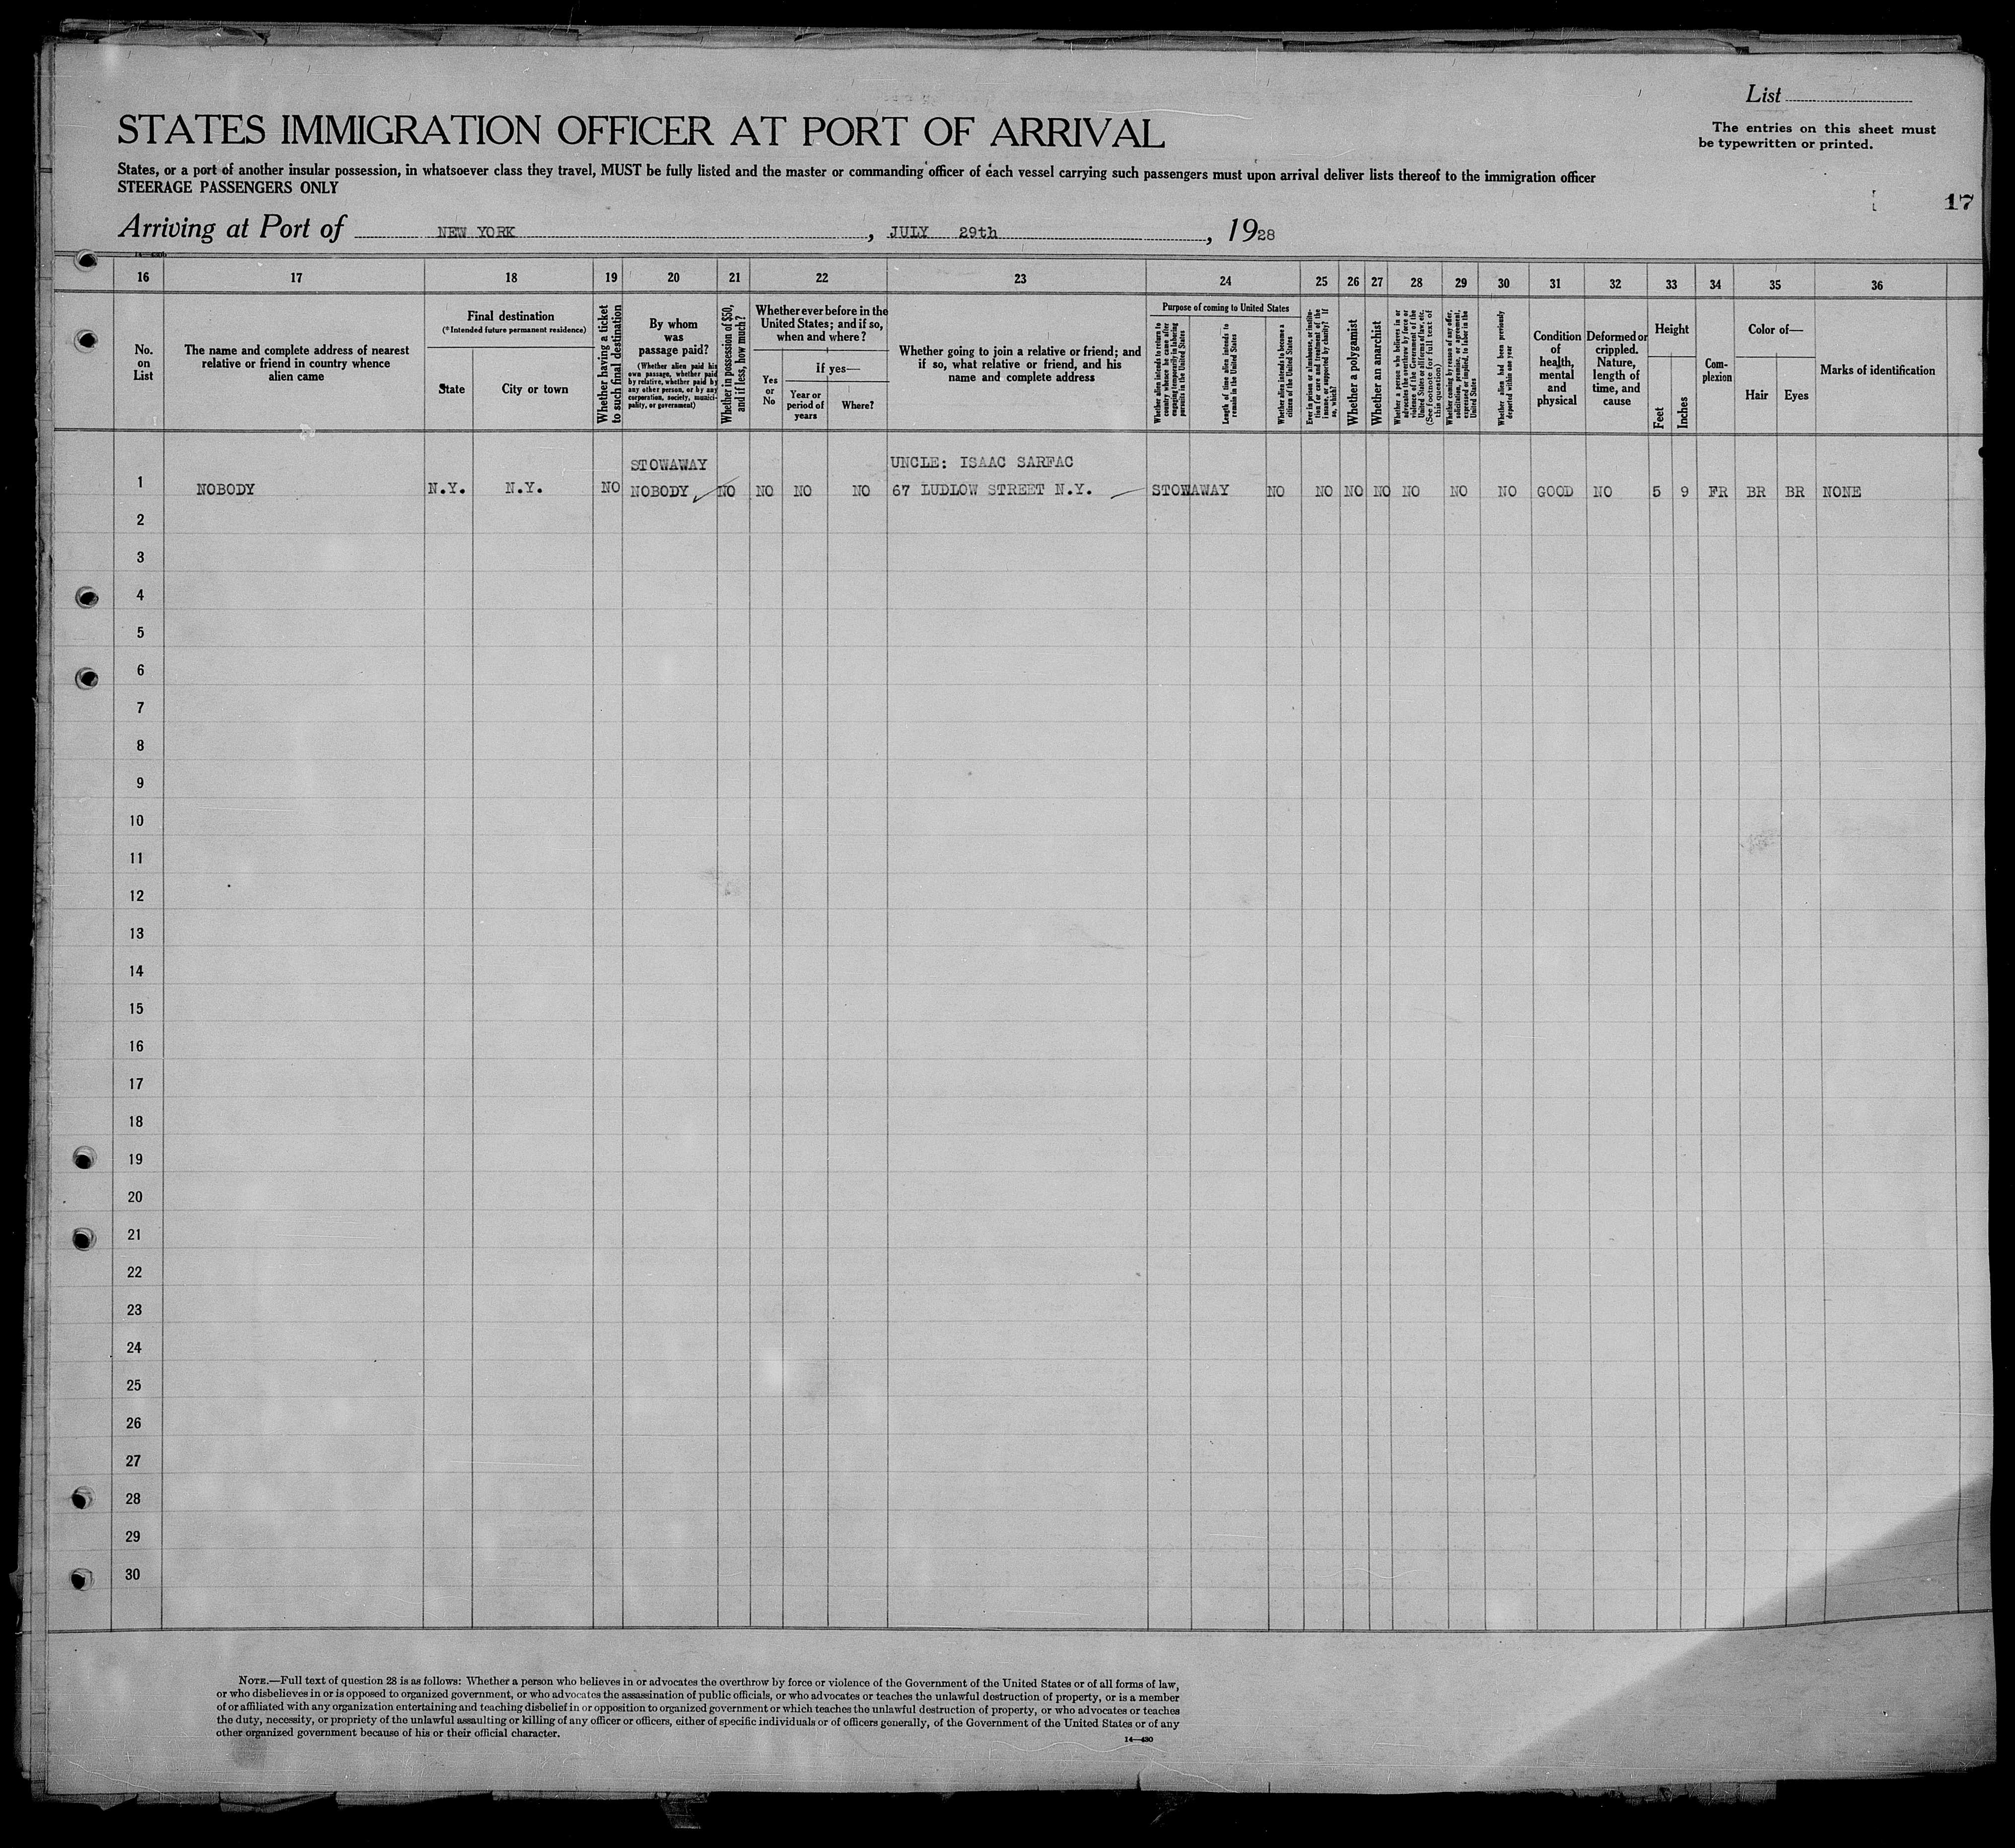 List
STATES IMMIGRATION OFFICER AT PORT OF ARRIVAL
The entries on this sheet must
be typewritten or printed.
States, or a port of another insular possession, in whatsoever class they travel, MUST be fully listed and the master or commanding officer of each vessel carrying such passengers must upon arrival deliver lists thereof to the immigration officer
STEERAGE PASSENGERS ONLY
17
Arriving at Port of NEW YORK, JULY 29th, 1928
16 17 18 19 20 21 22 23 24 25 26 27 28 29 30 31 32 33 34 35 36
No.
on
List
The name and complete address of nearest
relative or friend in country whence
alien came
Final destination
(*Intended future permanent residence)
State
City or town
Whether having a ticket
to such final destination
By whom
was
passage paid?
(Whether alien paid his
own passage, whether paid
by relative, whether paid by
any other person, or by any
corporation, society, munici-
pality, or government)
Whether in possession of $50,
and if less, how much?
Whether ever before in the
United States; and if so,
when and where?
Yes
or
No
If yes—
Year or
period of
years
Where?
Whether going to join a relative or friend; and
if so, what relative or friend, and his
name and complete address
Purpose of coming to United States
Whether alien intends to return to
country whence he came after
engaging temporarily in laboring
pursuits in the United States
Length of time alien intends to
remain in the United States
Whether alien intends to become a
citizen of the United States
Ever in prison or almshouse, or institu-
tion for care and treatment of the
insane, or supported by charity? If
so, which?
Whether a polygamist
Whether an anarchist
Whether a person who believes in or
advocates the overthrow by force or
violence of the Government of the
United States or all forms of law, etc.
(See footnote for full text of
this question)
Whether coming by reason of any offer,
solicitation, promise, or agreement,
expressed or implied, to labor in the
United States
Whether alien had been previously
deported within one year
Condition
of
health,
mental
and
physical
Deformed or
crippled.
Nature,
length of
time, and
cause
Height
Feet
Inches
Com-
plexion
Color of—
Hair
Eyes
Marks of identification
STOWAWAY UNCLE: ISAAC SARFAC
1 NOBODY N.Y. N.Y. NO NOBODY NO NO NO NO 67 LUDLOW STREET N.Y. STOWAWAY NO NO NO NO NO NO NO GOOD NO 5 9 FR BR BR NONE
2
3
4
5
6
7
8
9
10
11
12
13
14
15
16
17
18
19
20
21
22
23
24
25
26
27
28
29
30
NOTE.—Full text of question 28 is as follows: Whether a person who believes in or advocates the overthrow by force or violence of the Government of the United States or of all forms of law,
or who disbelieves in or is opposed to organized government, or who advocates the assassination of public officials, or who advocates or teaches the unlawful destruction of property, or is a member
of or affiliated with any organization entertaining and teaching disbelief in or opposition to organized government or which teaches the unlawful destruction of property, or who advocates or teaches
the duty, necessity, or propriety of the unlawful assaulting or killing of any officer or officers, either of specific individuals or of officers generally, of the Government of the United States or of any
other organized government because of his or their official character.
14—430